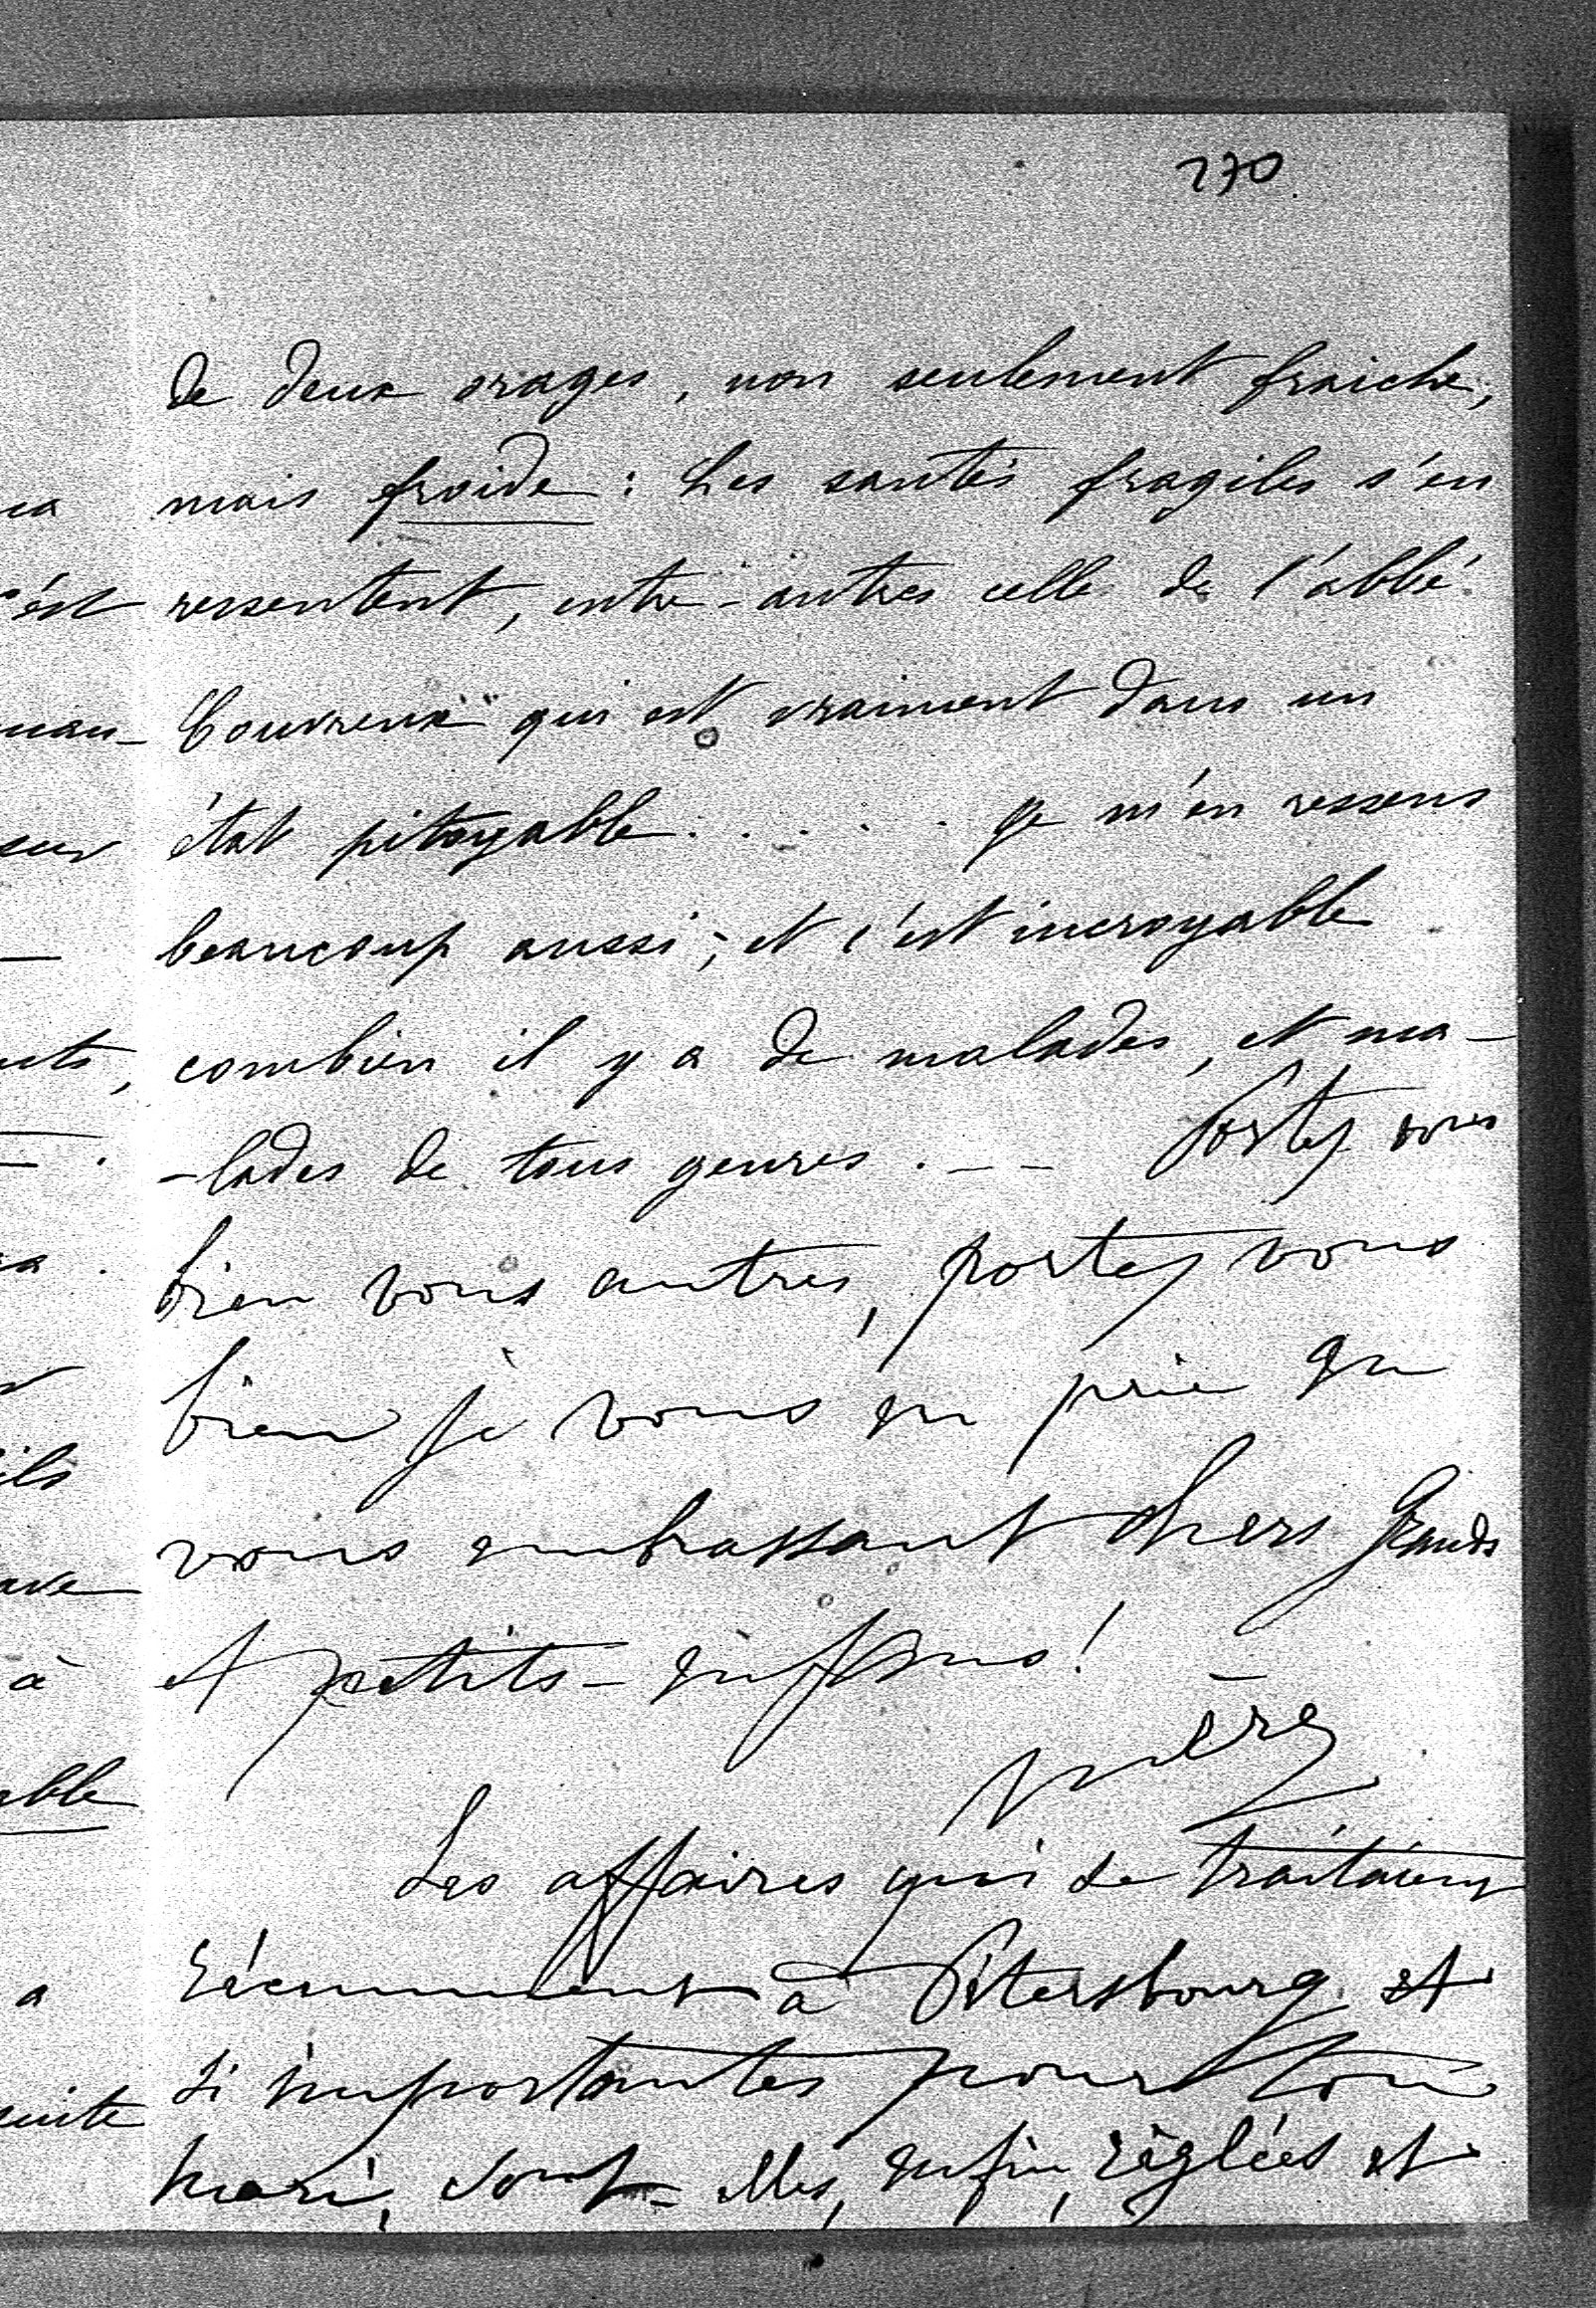 270
de deux orages, non seulement fraiche,
mais froide : Les santés fragiles s'en
ressentent, entre-autres celle de l'abbé
Couvreux qui est vraiment dans un
état pitoyable . . . . . Je m'en ressens
beaucoup aussi ; et c'est incroyable
combien il y a de malades, et ma-
-lades de tous genres. - - Portez vous
bien vous autres, portez vous
bien je vous en prie en
vous embrassant chers Grands
et petits-enfans! -
mère
Les affaires qui se traitaient
récemment à Pétersbourg et
si importantes pour ton
mari, sont-elles, enfin, réglées et
ca
c'est
man-
sur
—
nts,
a.
ils
ave
à
able
a
suite